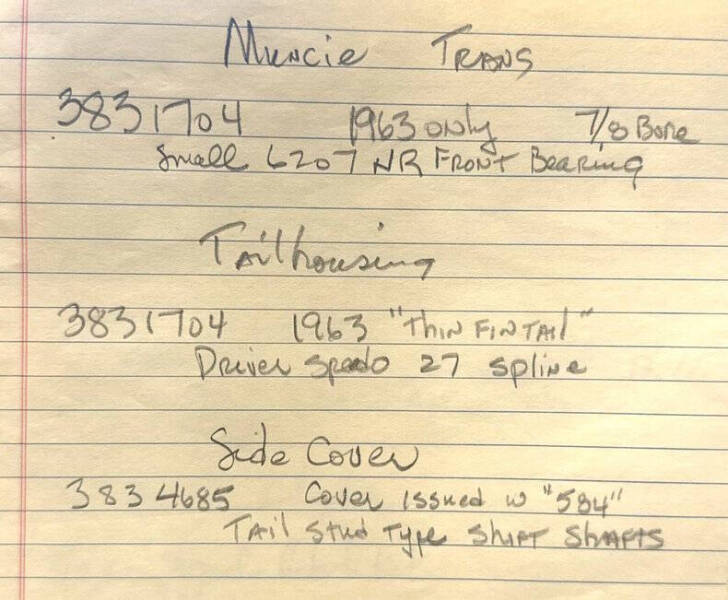 Muncie Trans
3831704 1963 only 7/8 Bore
Small 6207 NR Front Bearing
Tailhousing
3831704 1963 "Thin Fin Tail"
Driver Speedo 27 spline
Side Cover
3834685 Cover issued w "584"
Tail Stud Type Shift Shafts